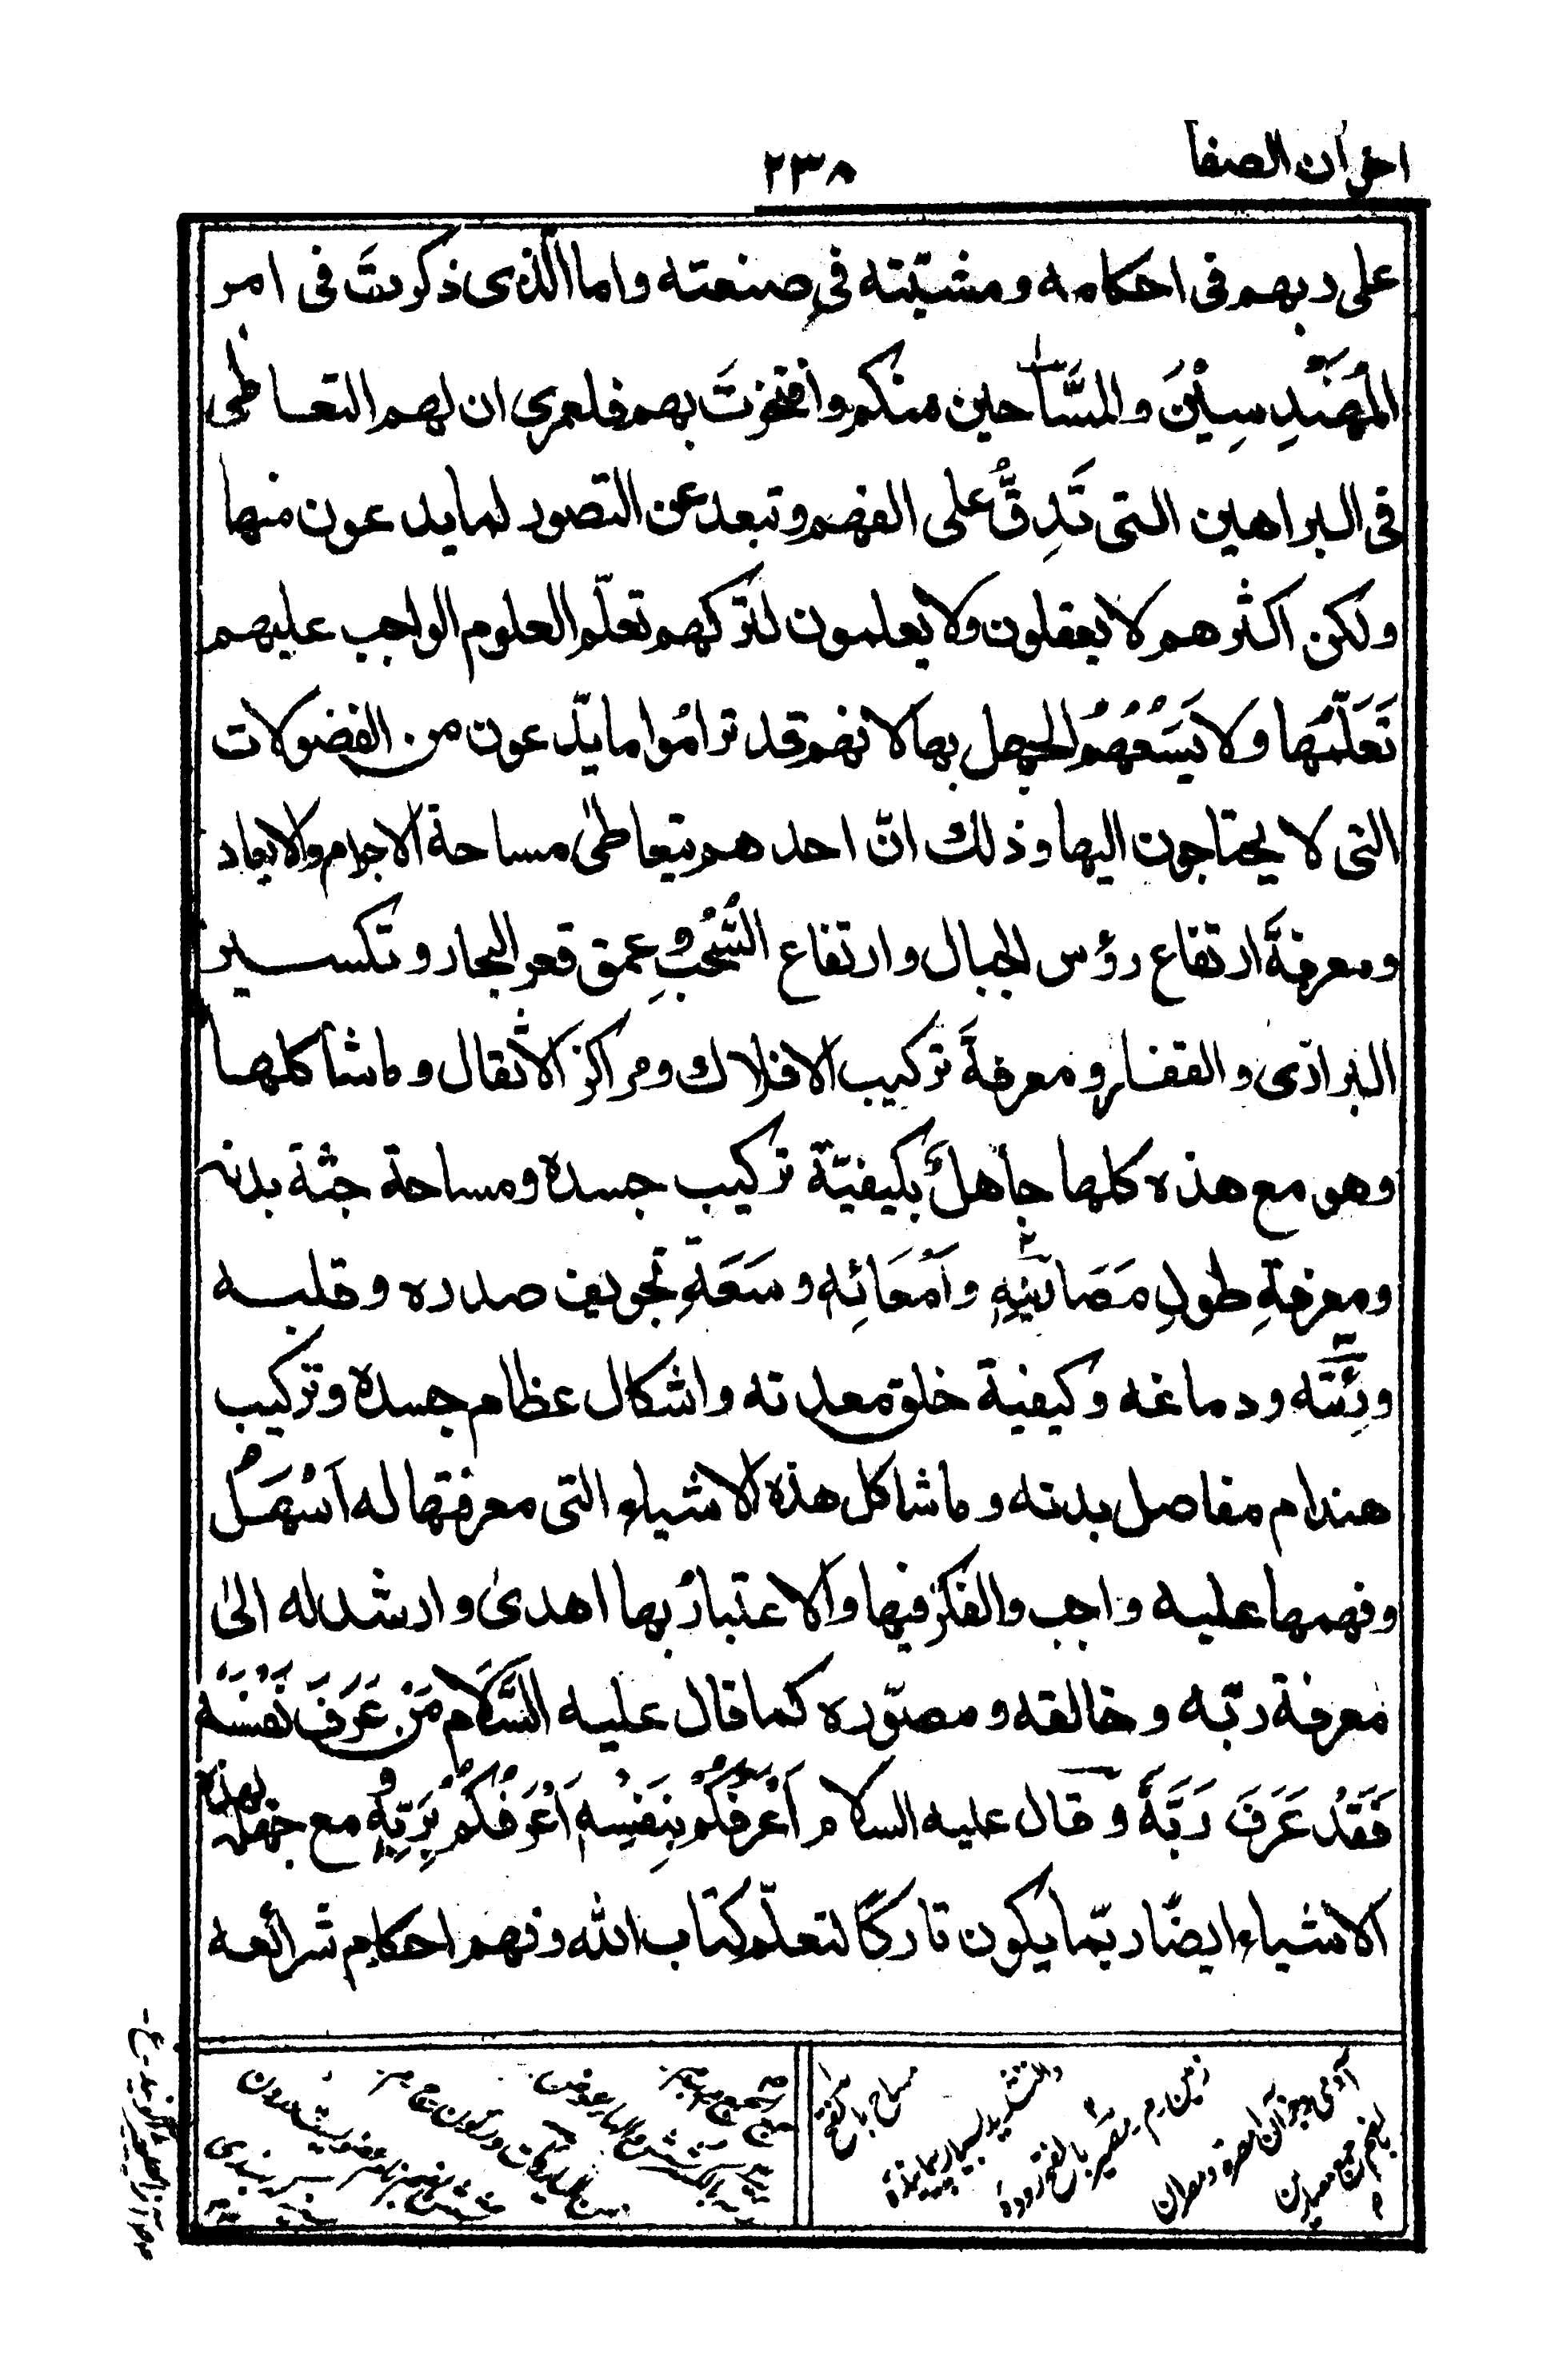 اخوان الصفا
٢٣٨
على ربهم فى احكامه ومشيّته فى صنعته واما الّذى ذكرتَ فى امر
المُهَنْدِسِيْنَ والمسَّاحين منكم وافتخرتَ بهم فلعمرى ان لهم التعاطى
فى البراهين التى تَدِقُّ على الفهم وتبعد عن التصور لما يدعون منها
ولكن اكثرهم لا يعقلون ولا يعلمون لتركهم تعلّم العلوم الواجب عليهم
تَعَلُّمُها ولا يَسَعُهُمُ الجهل بها لانهم قد تراموا ما يدّعون من الفضولات
التى لا يحتاجون اليها وذلك انّ احدهم يتعاطىٰ مساحة الاجرام والابعاد
ومعرفةَ ارتفاع رؤس الجبال وارتفاع السُّحُبِ وعمق قعر البحار وتكسير
البرارى والقفار ومعرفةَ تركيب الافلاك ومراكز الاثقال وما شاكلها
وهو مع هذه كلها جاهلٌ بكيفيّة تركيب جسده ومساحة جثة بدنه
ومعرفةِ طولِ مَصَارِيْنِهِ وأَمْعَائِه وسَعَةِ تجويف صدره وقلبه
ورِئَتِه ودماغه وكيفية خلق معدته واشكال عظام جسده وتركيب
هندام مفاصل بدنه وما شاكل هذه الاشياء التى معرفتها له اَسْهَلُ
وفهمها عليه واجب والفكرُ فيها والاعتبارُ بها اهدىٰ وارشد له الىٰ
معرفة ربّه وخالقه ومصوّره كما قال عليه السَّلَام مَنْ عَرَفَ نَفْسَهُ
فَقَدْ عَرَفَ رَبَّهُ وقال عليه السلام اَعْرَفُكُمْ بِنَفْسِهِ اَعْرَفُكُمْ بِرَبِّهِ مع جهله بهذه
الاشياء ايضًا ربّما يكون تاركًا لتعلّم كتاب الله وفهم احكام شرائعه